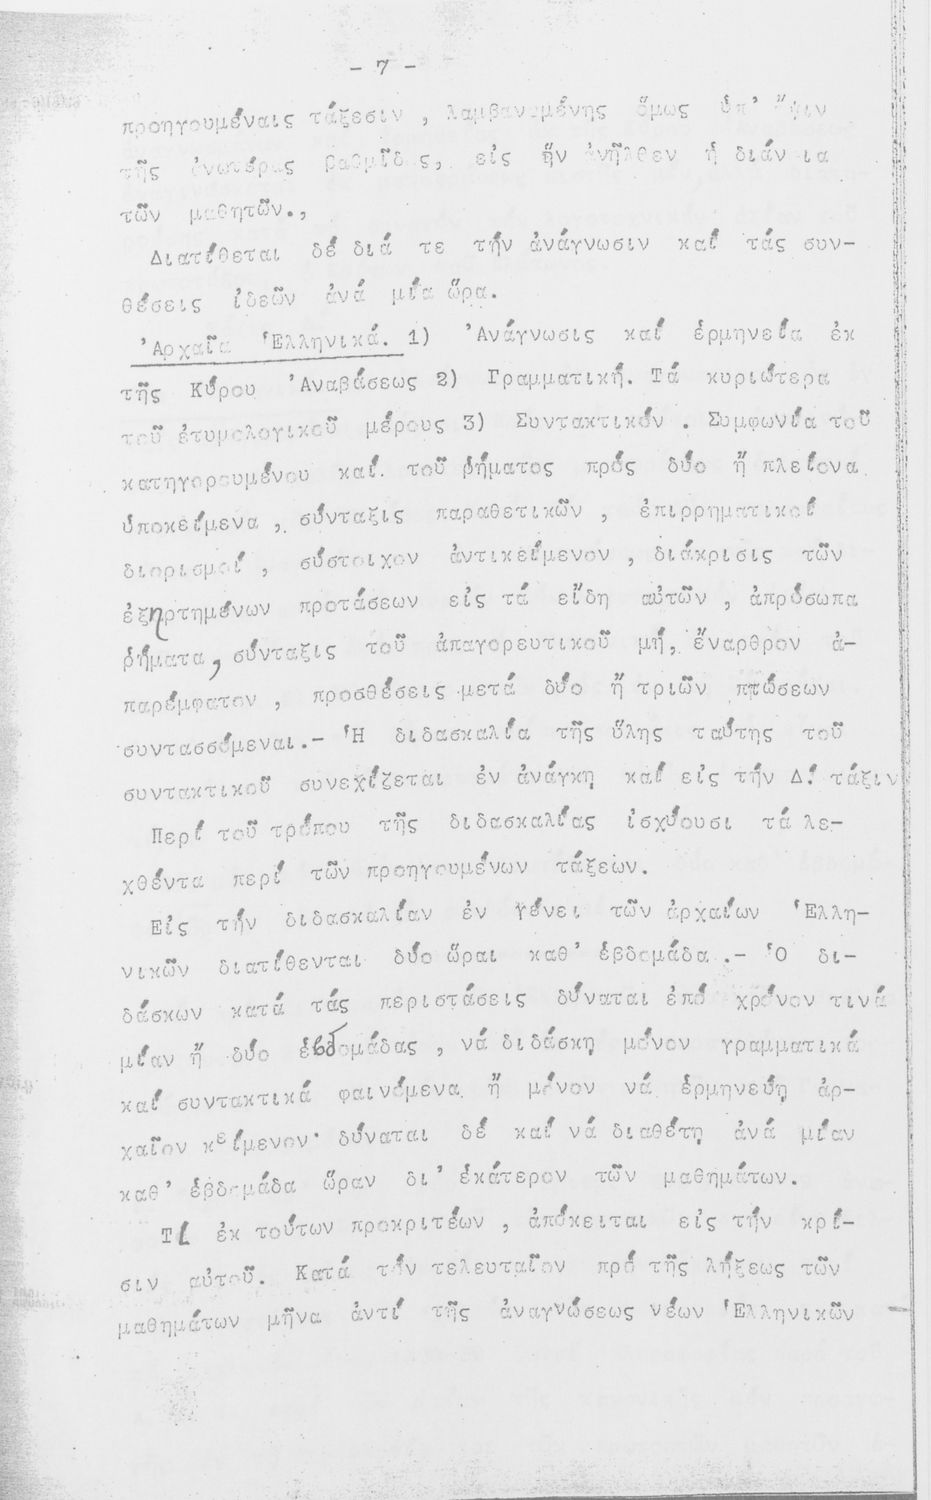 - 7 -
προηγουμέναις τάξεσιν , λαμβανομένης ὅμως ὑπ' ὄψιν
τῆς ἀνωτέρας βαθμῖδος, εἰς ἥν ἀνῆλθεν ἡ διάνοια
τῶν μαθητῶν.,
Διατίθεται δέ διά τε τήν ἀνάγνωσιν καί τάς συν-
θέσεις ἰδεῶν ἀνά μία ὥρα.
'Αρχαῖα Ἑλληνικά. 1) 'Ανάγνωσις καί ἑρμηνεία ἐκ
τῆς Κύρου 'Αναβάσεως 2) Γραμματική. Τά κυριώτερα
τοῦ ἐτυμολογικοῦ μέρους 3) Συντακτικόν . Συμφωνία τοῦ
κατηγορουμένου καί τοῦ ῥήματος πρός δύο ἤ πλείονα
ὑποκείμενα , σύνταξις παραθετικῶν , ἐπιρρηματικοί
διορισμοί , σύστοιχον ἀντικείμενον , διάκρισις τῶν
ἐξηρτημένων προτάσεων εἰς τά εἴδη αὐτῶν , ἀπρόσωπα
ῥήματα, σύνταξις τοῦ ἀπαγορευτικοῦ μή, ἔναρθρον ἀ-
παρέμφατον , προσθέσεις μετά δύο ἤ τριῶν πτώσεων
συντασσόμεναι.- Ἡ διδασκαλία τῆς ὕλης ταύτης τοῦ
συντακτικοῦ συνεχίζεται ἐν ἀνάγκῃ καί εἰς τήν Δ΄ τάξιν
Περί τοῦ τρόπου τῆς διδασκαλίας ἰσχύουσι τά λε-
χθέντα περί τῶν προηγουμένων τάξεων.
Εἰς τήν διδασκαλίαν ἐν γένει τῶν ἀρχαίων Ἑλλη-
νικῶν διατίθενται δύο ὥραι καθ' ἑβδομάδα .- Ὁ δι-
δάσκων κατά τάς περιστάσεις δύναται ἐπό χρόνον τινά
μίαν ἤ δύο ἑβδομάδας , νά διδάσκῃ μόνον γραμματικά
καί συντακτικά φαινόμενα ἤ μόνον νά ἑρμηνεύῃ ἀρ-
χαῖον κείμενον· δύναται δέ καί νά διαθέτῃ ἀνά μίαν
καθ' ἑβδομάδα ὥραν δι' ἑκάτερον τῶν μαθημάτων.
Τί ἐκ τούτων προκριτέων , ἀπόκειται εἰς τήν κρί-
σιν αὐτοῦ. Κατά τόν τελευταῖον πρό τῆς λήξεως τῶν
μαθημάτων μῆνα ἀντί τῆς ἀναγνώσεως νέων Ἑλληνικῶν